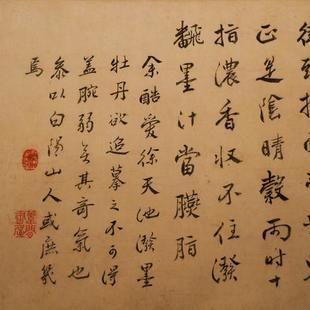 正是陰晴穀雨時十
指濃香収不住潑
翻墨汁當臙脂
余酷愛徐天池潑墨
牡丹欲追摹之不可得
蓋腕弱无其奇氣也
參以白陽山人或庶幾
焉